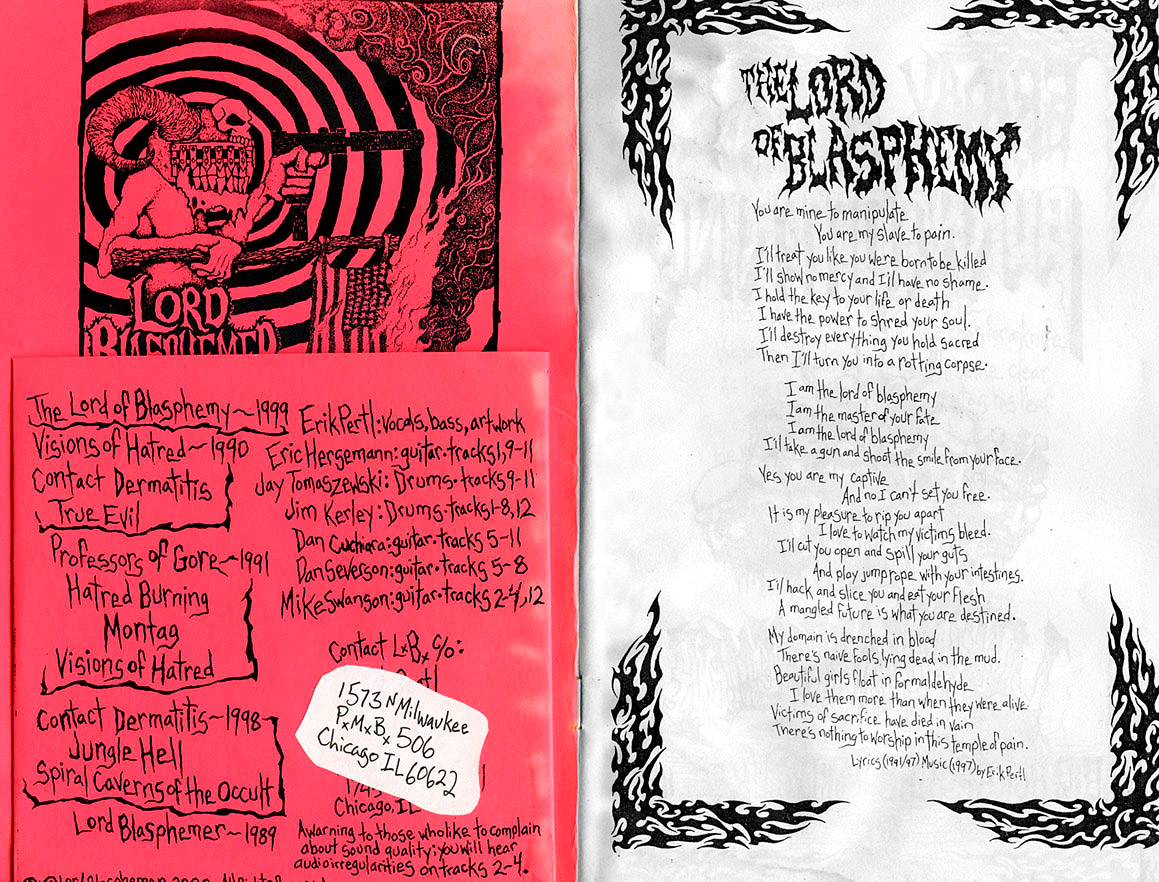 LORD
BLASPHEMER
The Lord of Blasphemy~1999
Visions of Hatred~1990
Contact Dermatitis
True Evil
Professors of Gore~1991
Hatred Burning
Montag
Visions of Hatred
Contact Dermatitis~1998
Jungle Hell
Spiral Caverns of the Occult
Lord Blasphemer~1989
Erik Pertl: vocals, bass, artwork
Eric Hergemann: guitar·tracks 1, 9-11
Jay Tomaszewski: Drums·tracks 9-11
Jim Kerley: Drums·tracks 1-8, 12
Dan Cuchiara: guitar·tracks 5-11
Dan Severson: guitar·tracks 5-8
Mike Swanson: guitar·tracks 2-4, 12
Contact LxBx c/o:
1573 N Milwaukee
PxMxBx 506
Chicago IL 60622
Chicago, IL
A warning to those who like to complain
about sound quality; you will hear
audio irregularities on tracks 2-4.
THE LORD
OF BLASPHEMY
You are mine to manipulate
You are my slave to pain.
I'll treat you like you were born to be killed
I'll show no mercy and I'll have no shame.
I hold the key to your life or death
I have the power to shred your soul.
I'll destroy everything you hold sacred
Then I'll turn you into a rotting corpse.
I am the lord of blasphemy
I am the master of your fate
I am the lord of blasphemy
I'll take a gun and shoot the smile from your face.
Yes you are my captive
And no I can't set you free.
It is my pleasure to rip you apart
I love to watch my victims bleed.
I'll cut you open and spill your guts
And play jumprope with your intestines.
I'll hack and slice you and eat your flesh
A mangled future is what you are destined.
My domain is drenched in blood
There's naive fools lying dead in the mud.
Beautiful girls float in formaldehyde
I love them more than when they were alive
Victims of sacrifice have died in vain
There's nothing to worship in this temple of pain.
Lyrics (1991/97) Music (1997) by Erik Pertl